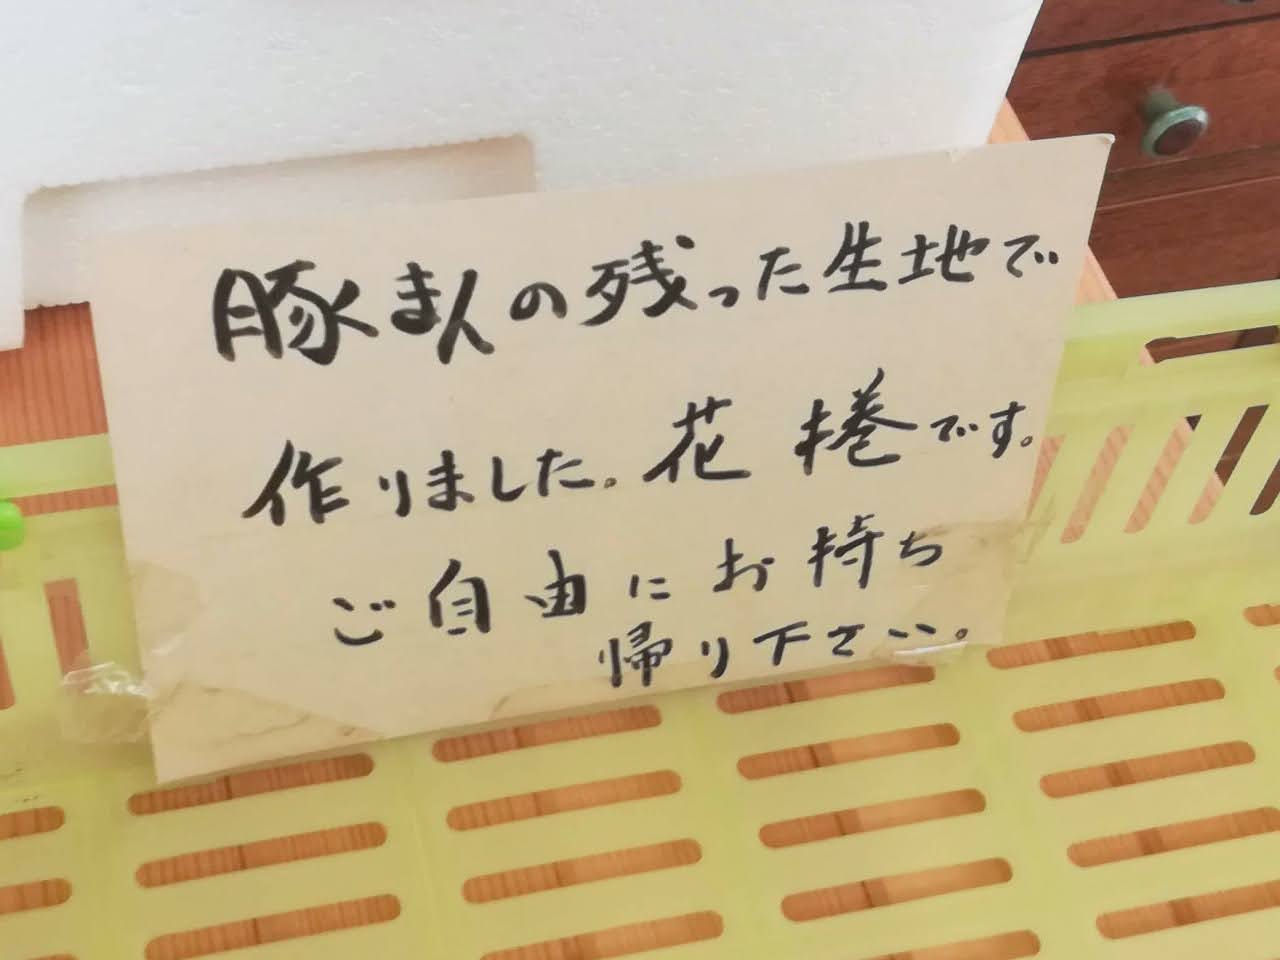 豚まんの残った生地で
作りました。花捲です。
ご自由にお持ち
帰り下さい。